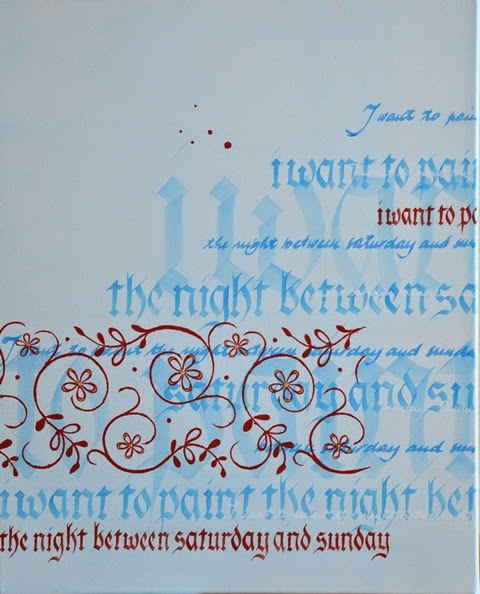 I want to pain
i want to pain
i want to pa
the night between saturday and sun
the night between sa
I want to paint the night between saturday and sunda
saturday and su
saturday and sun
i want to paint the night bet
the night between saturday and sunday